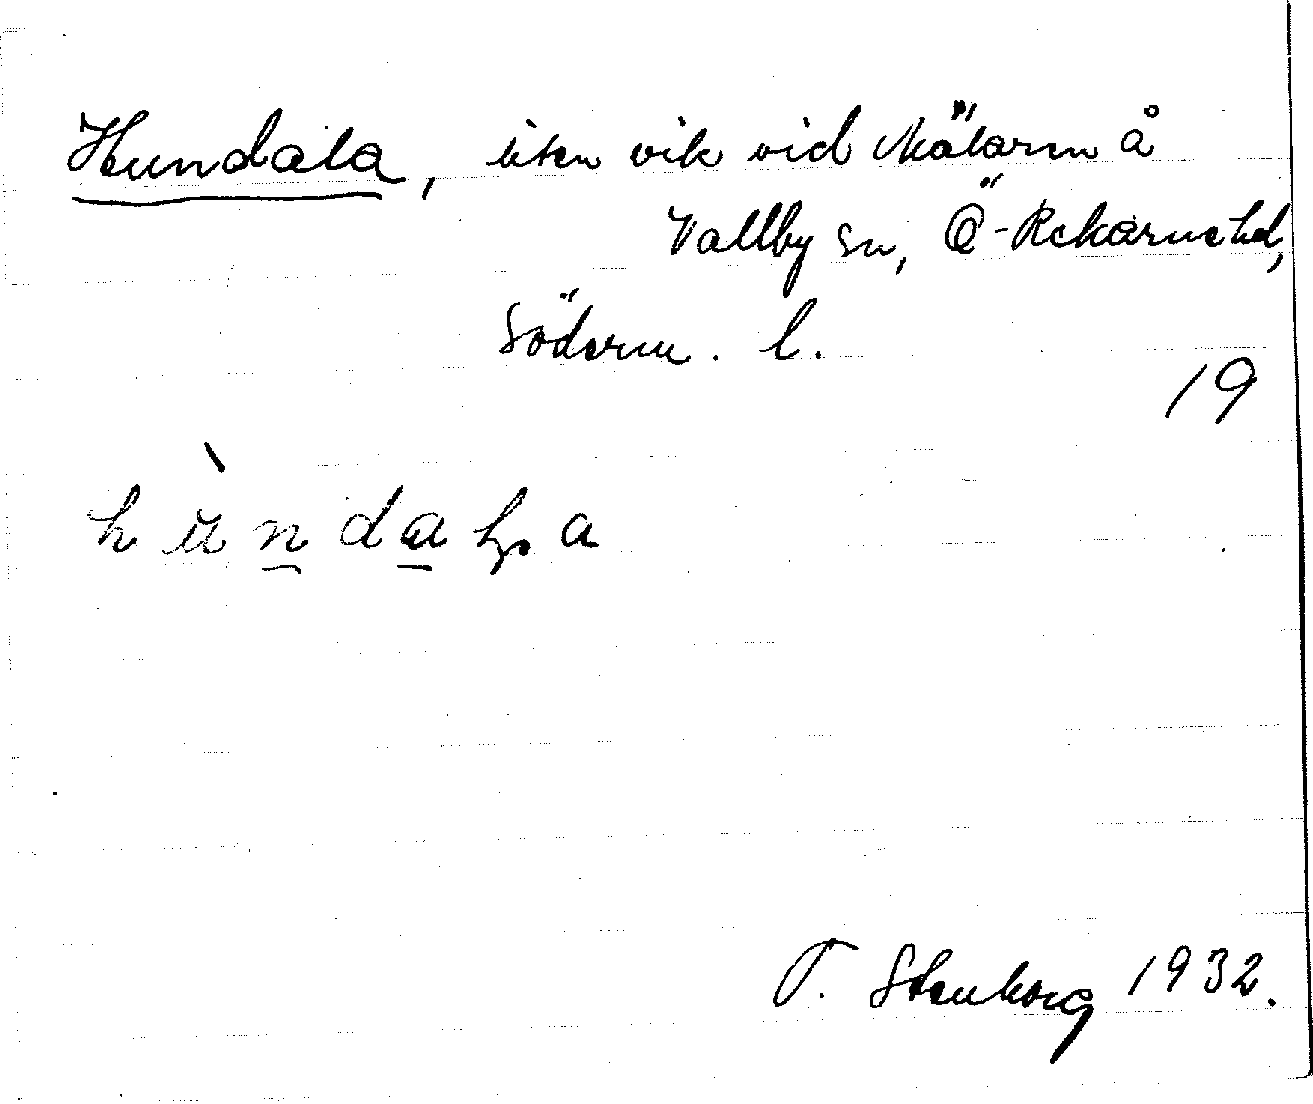 Hundala, liten vik vid Mälaren å
Vallby sn, Ö-Rekarne hd,
Söderm. l.
19
hùndala
T. Stenborg 1932.